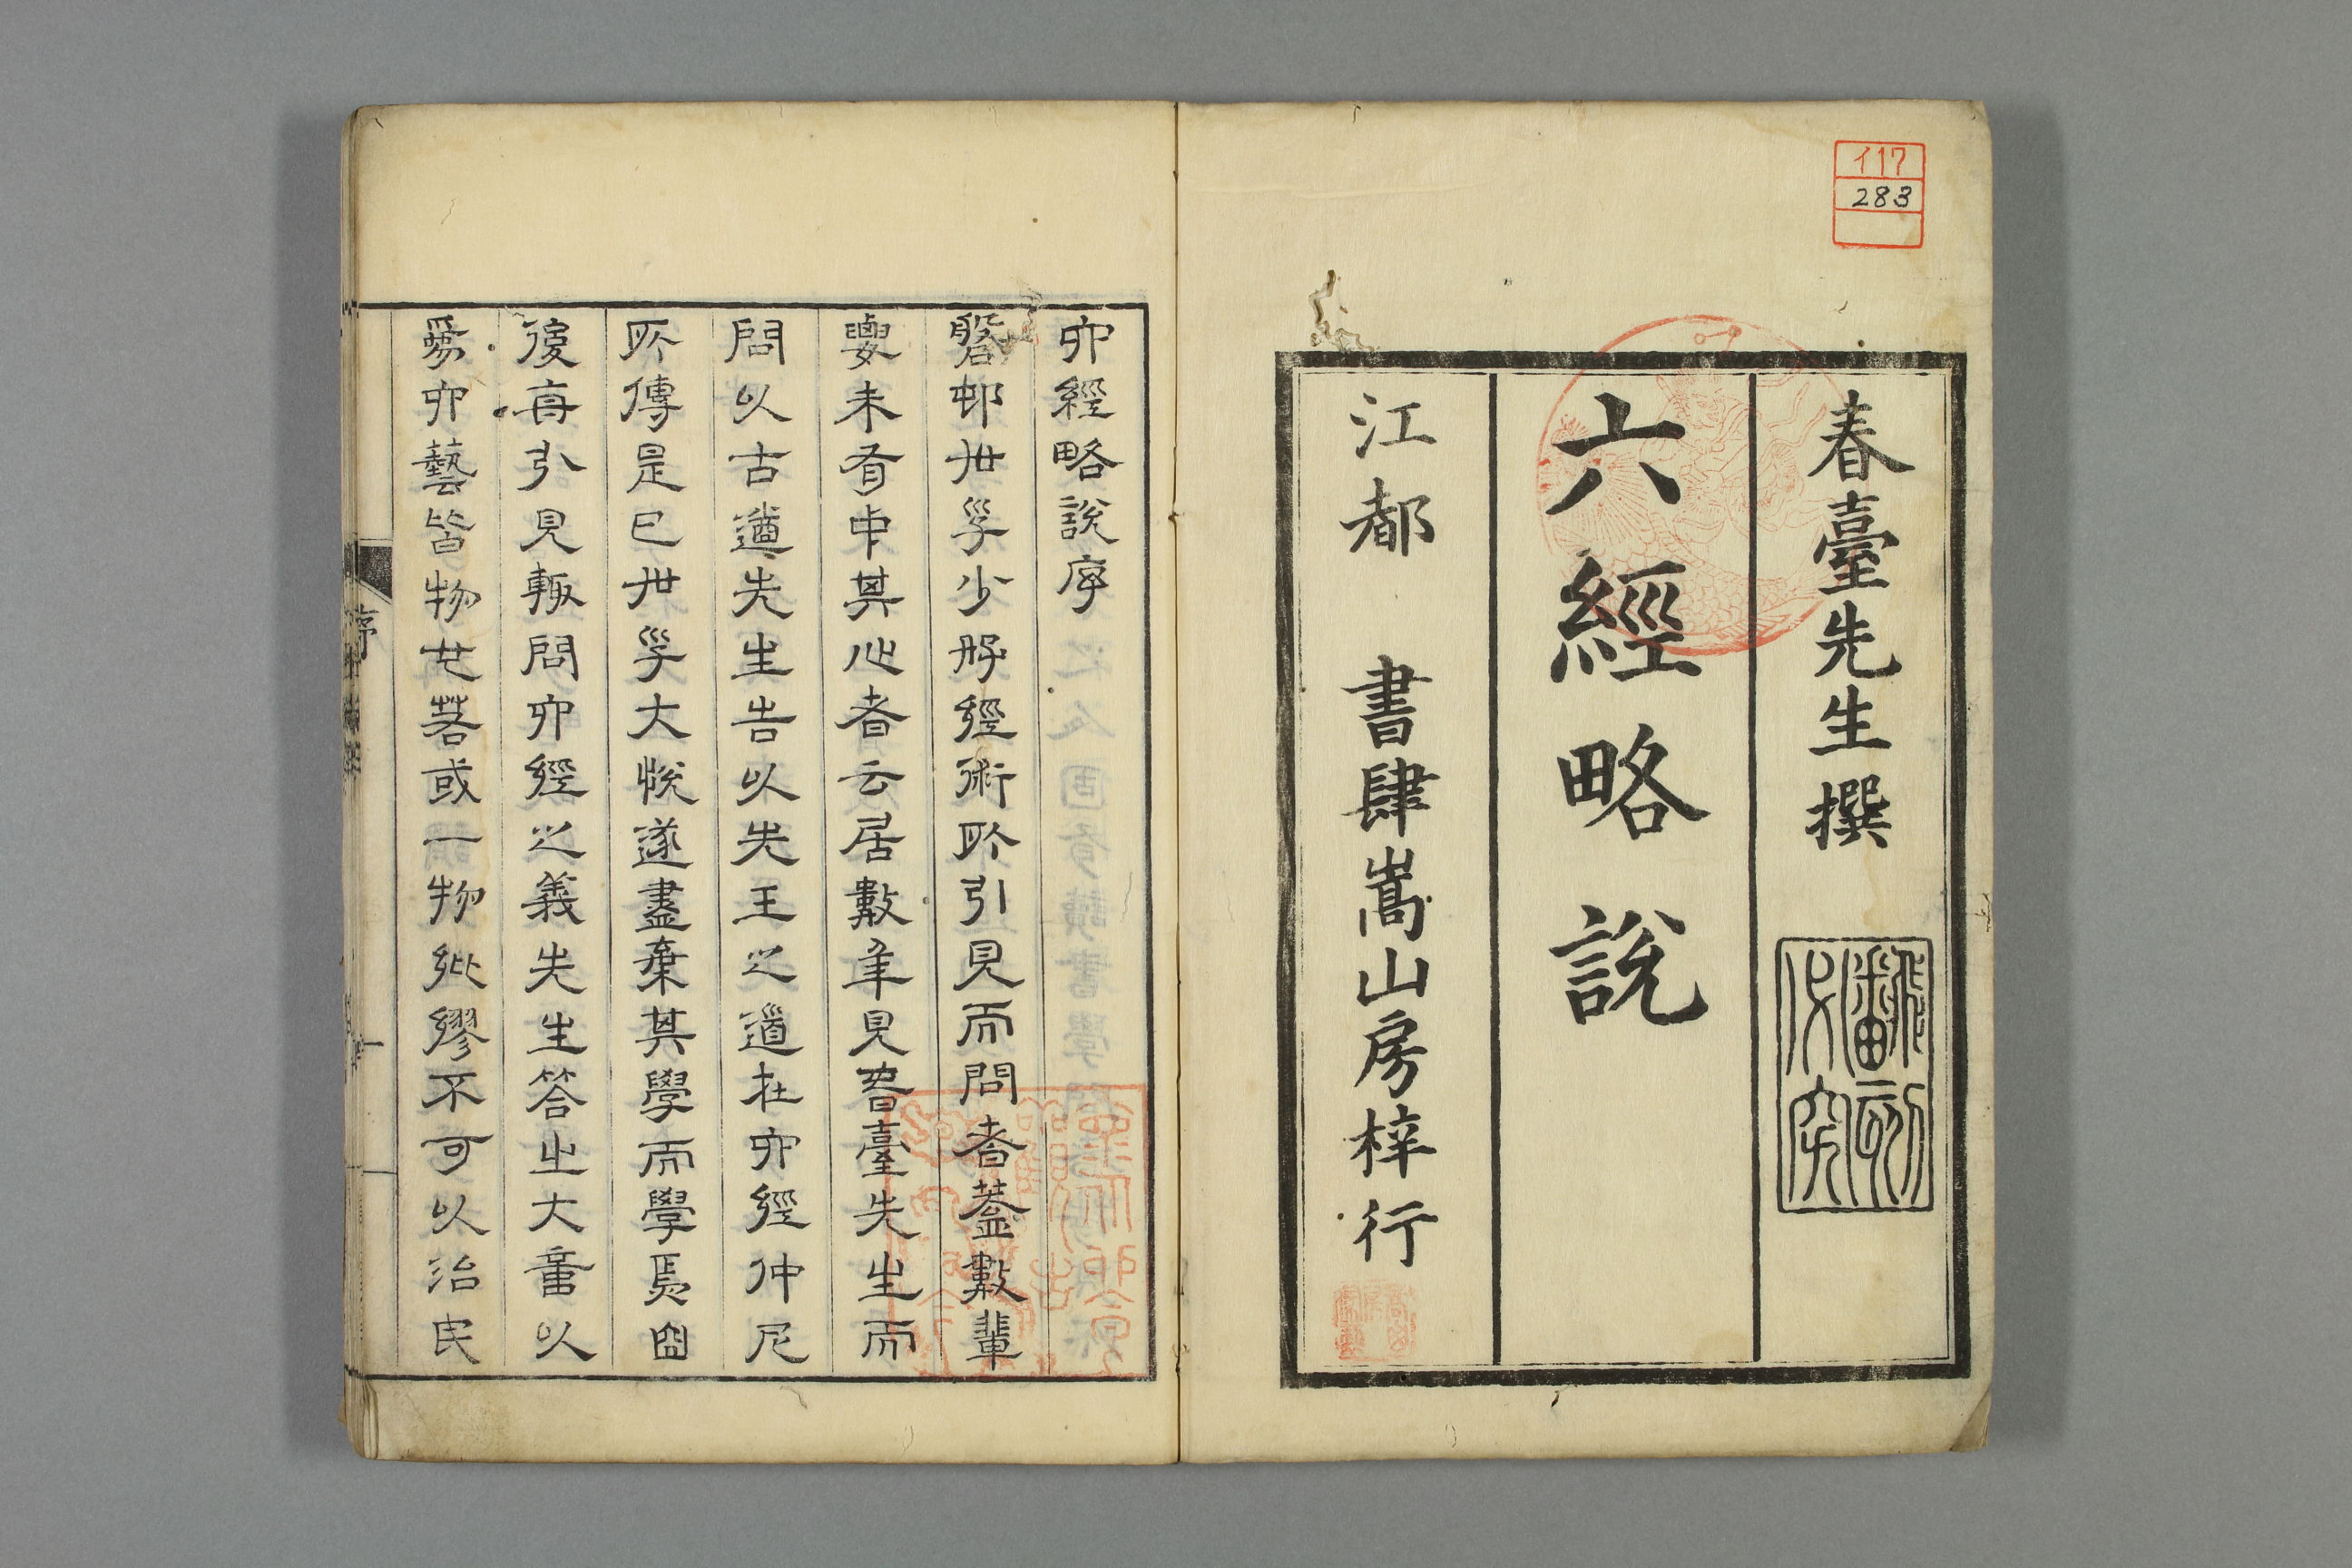 イ17
283
春臺先生撰
翻刻必究
六經略說
江都 書肆嵩山房梓行
六經略說序
磐邨世孚少好經術所引見而問者蓋數輩
要未有中其心者云居數年見春臺先生而
問以古道先生告以先王之道在六經仲尼
所傳是已世孚大悅遂盡棄其學而學焉囪
後再引見輒問六經之義先生答之大畗以
爲六藝皆物也若或一物紕繆不可以治民
序